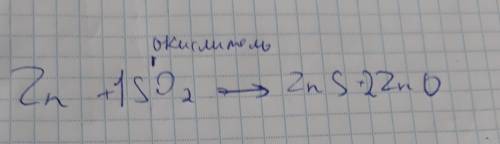 окислитель
Zn +1SO₂ → ZnS+2ZnO